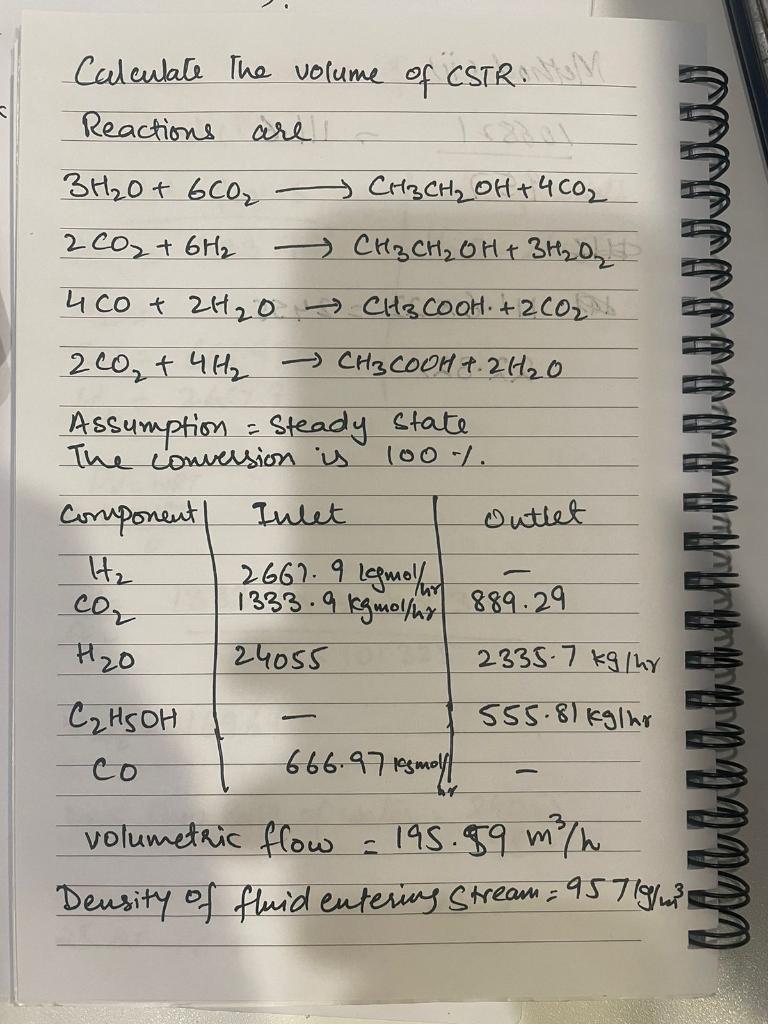 Calculate The volume of CSTR.
Reactions are
3H₂O + 6CO₂ ⟶ CH₃CH₂OH + 4CO₂
2CO₂ + 6H₂ ⟶ CH₃CH₂OH + 3H₂O₂
4CO + 2H₂O → CH₃COOH. + 2CO₂
2CO₂ + 4H₂ → CH₃COOH + 2H₂O
Assumption = Steady State
The conversion is 100 %.
Component Inlet Outlet
H₂ 2667.9 kgmol/hr —
CO₂ 1333.9 kgmol/hr 889.29
H₂O 24055 2335.7 kg/hr
C₂H5OH — 555.81 kg/hr
CO 666.97 kgmol/hr —
volumetric flow = 195.59 m³/h
Density of fluid entering Stream = 957 kg/m³